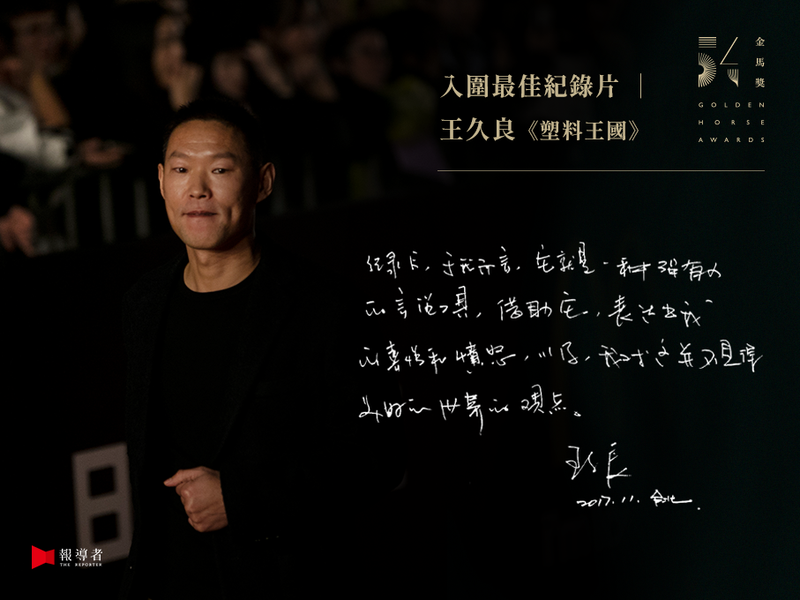 入圍最佳紀錄片｜
王久良《塑料王國》
54
金馬獎
GOLDEN
HORSE
AWARDS
纪录片，于我而言，它就是一种强有力
的言说工具，借助它，表达出我
的喜悦和愤怒，以及，我对这并不是
美好的世界的观点。
王久良
2017.11. 台北.
報導者
THE REPORTER